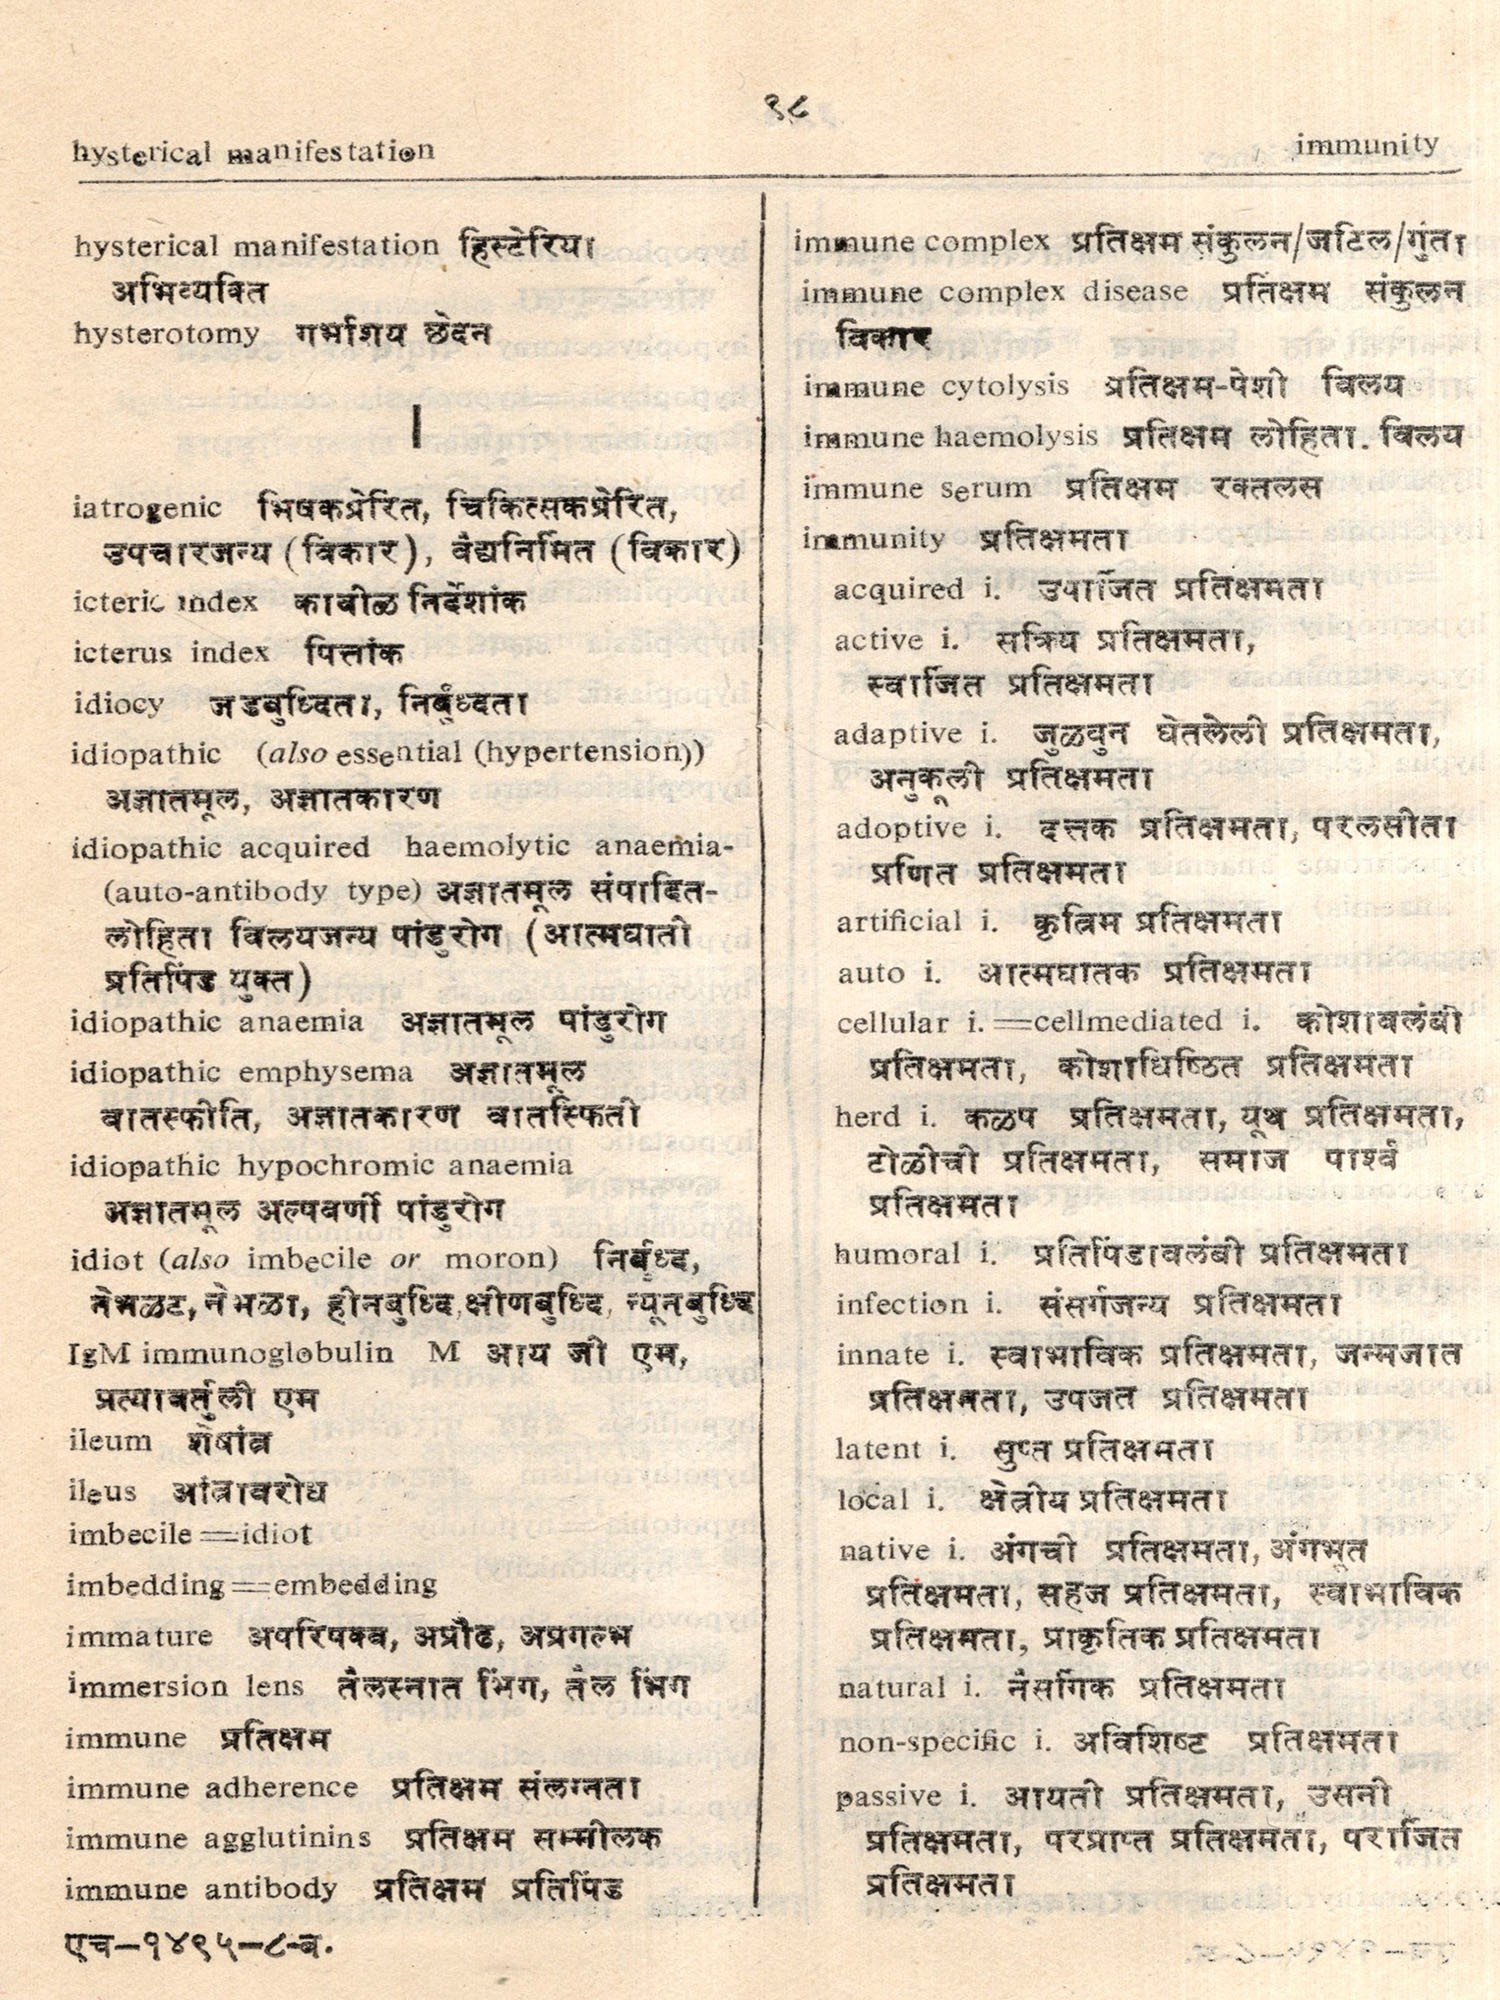 ९८
hysterical manifestation
immunity
hysterical manifestation हिस्टेरिया
अभिव्यक्ति
hysterotomy गर्भाशय छेदन
I
iatrogenic भिषकप्रेरित, चिकित्सकप्रेरित,
उपचारजन्य (विकार), वैद्यनिर्मित (विकार)
icteric index कावीळ निर्देशांक
icterus index पित्तांक
idiocy जडबुध्दिता, निर्बुध्दता
idiopathic (also essential (hypertension))
अज्ञातमूल, अज्ञातकारण
idiopathic acquired haemolytic anaemia-
(auto-antibody type) अज्ञातमूल संपादित-
लोहिता विलयजन्य पांडुरोग (आत्मघाती
प्रतिपिंड युक्त)
idiopathic anaemia अज्ञातमूल पांडुरोग
idiopathic emphysema अज्ञातमूल
वातस्फीति, अज्ञातकारण वातस्फिती
idiopathic hypochromic anaemia
अज्ञातमूल अल्पवर्णी पांडुरोग
idiot (also imbecile or moron) निर्बुध्द,
नेभळट, नेभळा, हीनबुध्दि, क्षीणबुध्दि, न्यूनबुध्दि
IgM immunoglobulin M आय जी एम,
प्रत्यावर्तुली एम
ileum शेषांत्र
ileus आंत्रावरोध
imbecile=idiot
imbedding=embedding
immature अपरिपक्व, अप्रौढ, अप्रगल्भ
immersion lens तैलस्नात भिंग, तैल भिंग
immune प्रतिक्षम
immune adherence प्रतिक्षम संलग्नता
immune agglutinins प्रतिक्षम सम्मीलक
immune antibody प्रतिक्षम प्रतिपिंड
एच–१४९५–८-ब.
immune complex प्रतिक्षम संकुलन/जटिल/गुंता
immune complex disease प्रतिक्षम संकुलन
विकार
immune cytolysis प्रतिक्षम-पेशी विलय
immune haemolysis प्रतिक्षम लोहिता. विलय
immune serum प्रतिक्षम रक्तलस
immunity प्रतिक्षमता
acquired i. उपार्जित प्रतिक्षमता
active i. सक्रिय प्रतिक्षमता,
स्वार्जित प्रतिक्षमता
adaptive i. जुळवुन घेतलेली प्रतिक्षमता,
अनुकूली प्रतिक्षमता
adoptive i. दत्तक प्रतिक्षमता, परलसीता
प्रणित प्रतिक्षमता
artificial i. कृत्रिम प्रतिक्षमता
auto i. आत्मघातक प्रतिक्षमता
cellular i.=cellmediated i. कोशावलंबी
प्रतिक्षमता, कोशाधिष्ठित प्रतिक्षमता
herd i. कळप प्रतिक्षमता, यूथ प्रतिक्षमता,
टोळीची प्रतिक्षमता, समाज पार्श्व
प्रतिक्षमता
humoral i. प्रतिपिंडावलंबी प्रतिक्षमता
infection i. संसर्गजन्य प्रतिक्षमता
innate i. स्वाभाविक प्रतिक्षमता, जन्मजात
प्रतिक्षमता, उपजत प्रतिक्षमता
latent i. सुप्त प्रतिक्षमता
local i. क्षेत्रीय प्रतिक्षमता
native i. अंगची प्रतिक्षमता, अंगभूत
प्रतिक्षमता, सहज प्रतिक्षमता, स्वाभाविक
प्रतिक्षमता, प्राकृतिक प्रतिक्षमता
natural i. नैसर्गिक प्रतिक्षमता
non-specific i. अविशिष्ट प्रतिक्षमता
passive i. आयती प्रतिक्षमता, उसनी
प्रतिक्षमता, परप्राप्त प्रतिक्षमता, परार्जित
प्रतिक्षमता